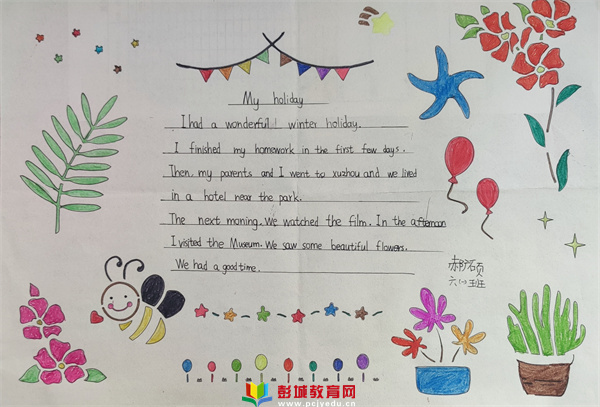 My holiday
I had a wonderful winter holiday.
I finished my homework in the first few days.
Then, my parents and I went to xuzhou and we lived
in a hotel near the park.
The next moning, We watched the film. In the afternoon
I visited the Museum. We saw some beautiful flowers.
We had a good time.
郝硕
六(1)班
彭城教育网
www.pcjyedu.cn